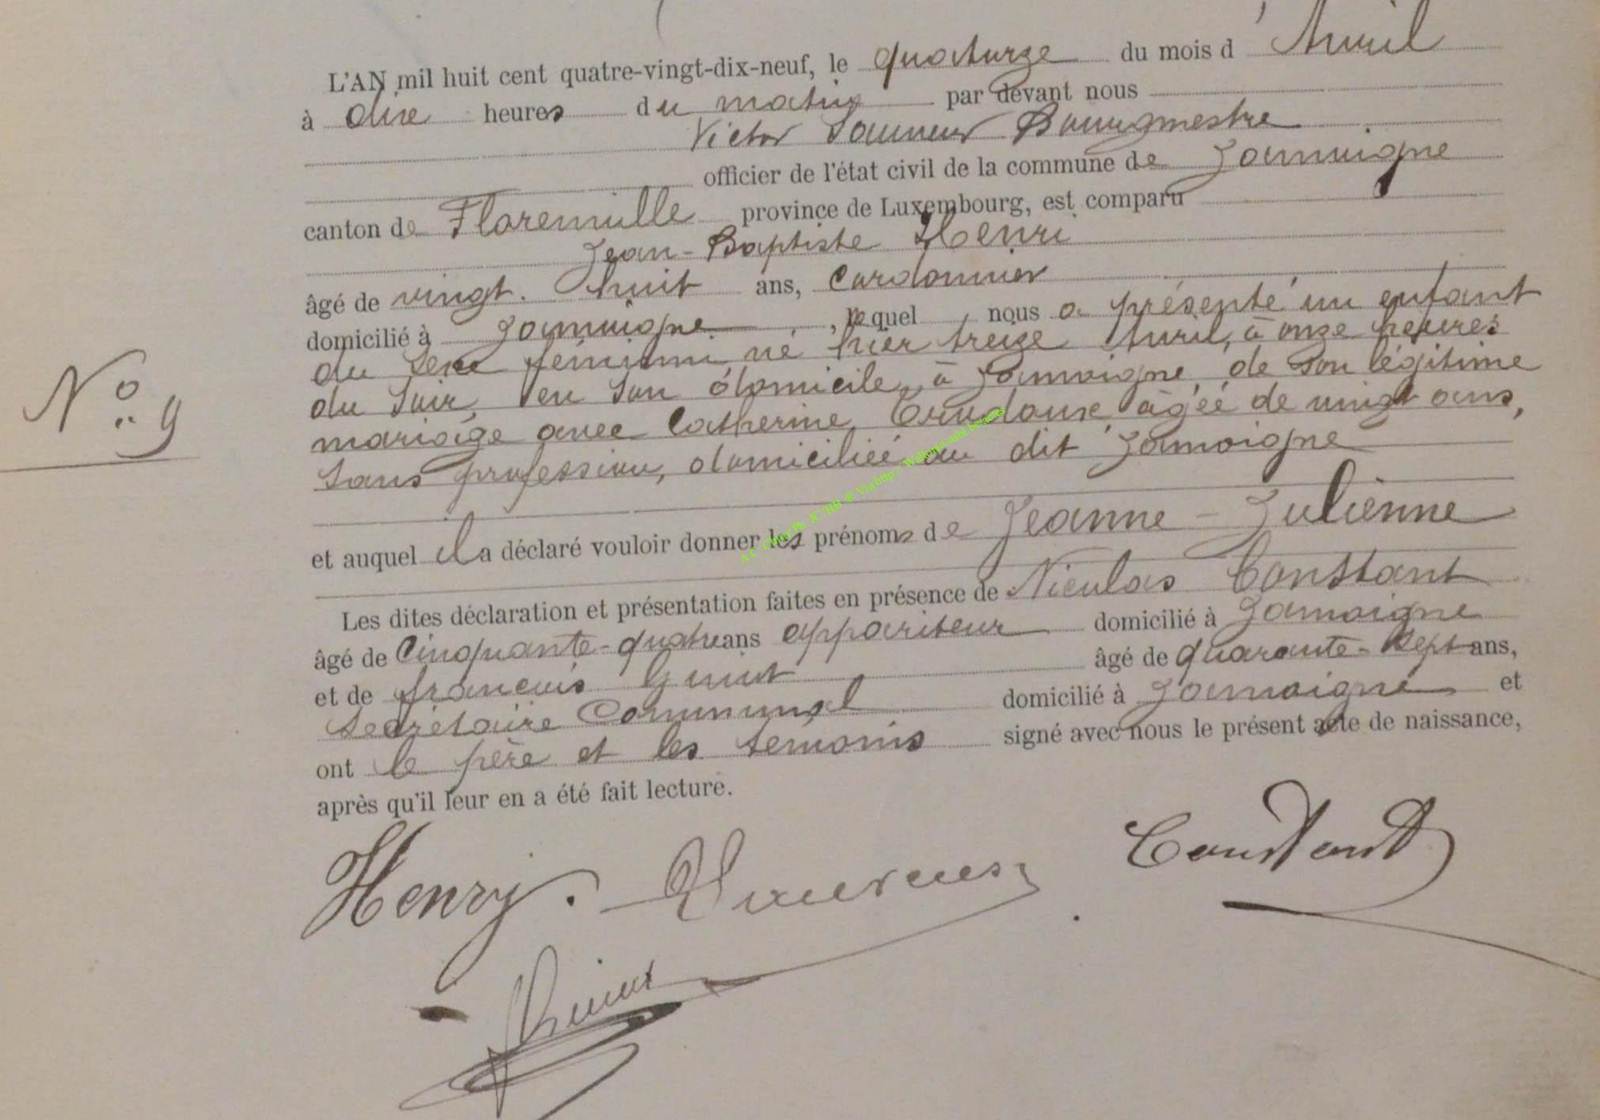 L'AN mil huit cent quatre-vingt-dix-neuf, le quatorze du mois d'Avril
à dix heures du matin par devant nous
Victor Bourgmestre
officier de l'état civil de la commune de Jamoigne
canton de Florenville province de Luxembourg, est comparu
Jean-Baptiste Henri
âgé de vingt-huit ans, Cordonnier
domicilié à Jamoigne, lequel nous a présenté un enfant
du sexe féminin né hier treize Avril, à onze heures
du soir, en son domicile, à Jamoigne, de son légitime
mariage avec Catherine âgée de vingt ans,
sans profession, domiciliée au dit Jamoigne
N° 9
et auquel il a déclaré vouloir donner les prénoms de Jeanne-Julienne
Les dites déclaration et présentation faites en présence de Nicolas Constant
âgé de Cinquante-quatre ans appariteur domicilié à Jamoigne
et de françois âgé de quarante-sept ans,
Secrétaire Communal domicilié à Jamoigne et
ont le père et les témoins signé avec nous le présent acte de naissance,
après qu'il leur en a été fait lecture.
Henry. Constant